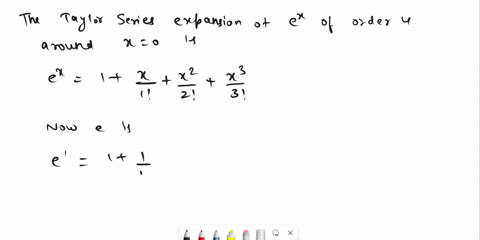 The Taylor Series expansion of e^x of order 4
around x=0 is
e^x = 1 + x/1! + x^2/2! + x^3/3!
Now e is
e^1 = 1 + 1/1